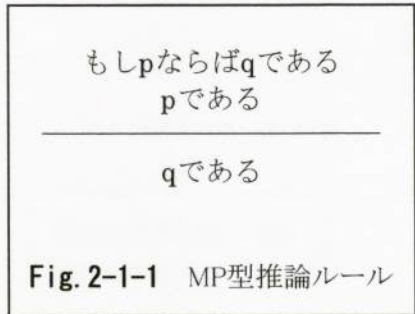 もしpならばqである
pである
qである
Fig. 2-1-1 MP型推論ルール